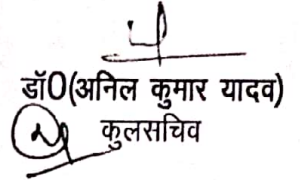 डॉ0(अनिल कुमार यादव)
कुलसचिव